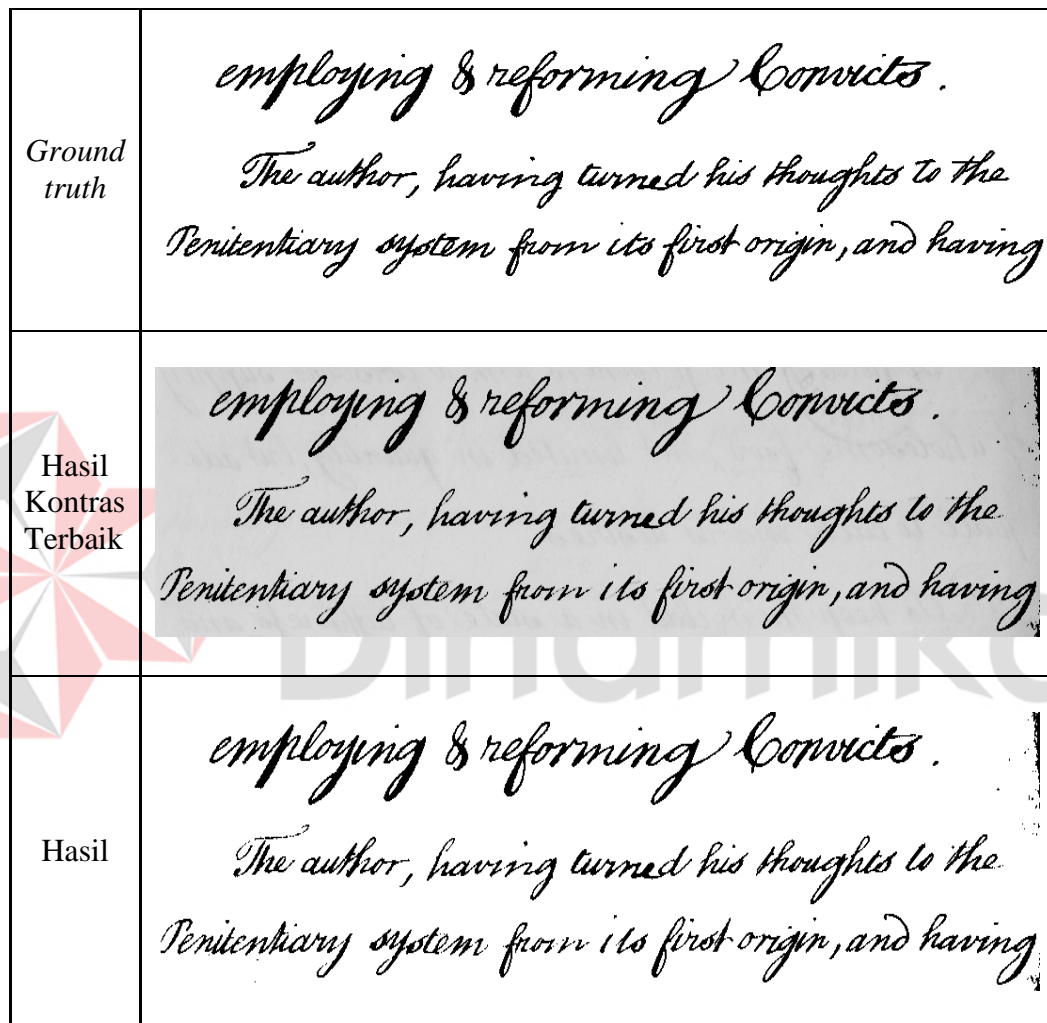 Ground
truth
employing & reforming Convicts.
The author, having turned his thoughts to the
Penitentiary system from its first origin, and having
Hasil
Kontras
Terbaik
employing & reforming Convicts.
The author, having turned his thoughts to the
Penitentiary system from its first origin, and having
Dinamika
Hasil
employing & reforming Convicts.
The author, having turned his thoughts to the
Penitentiary system from its first origin, and having